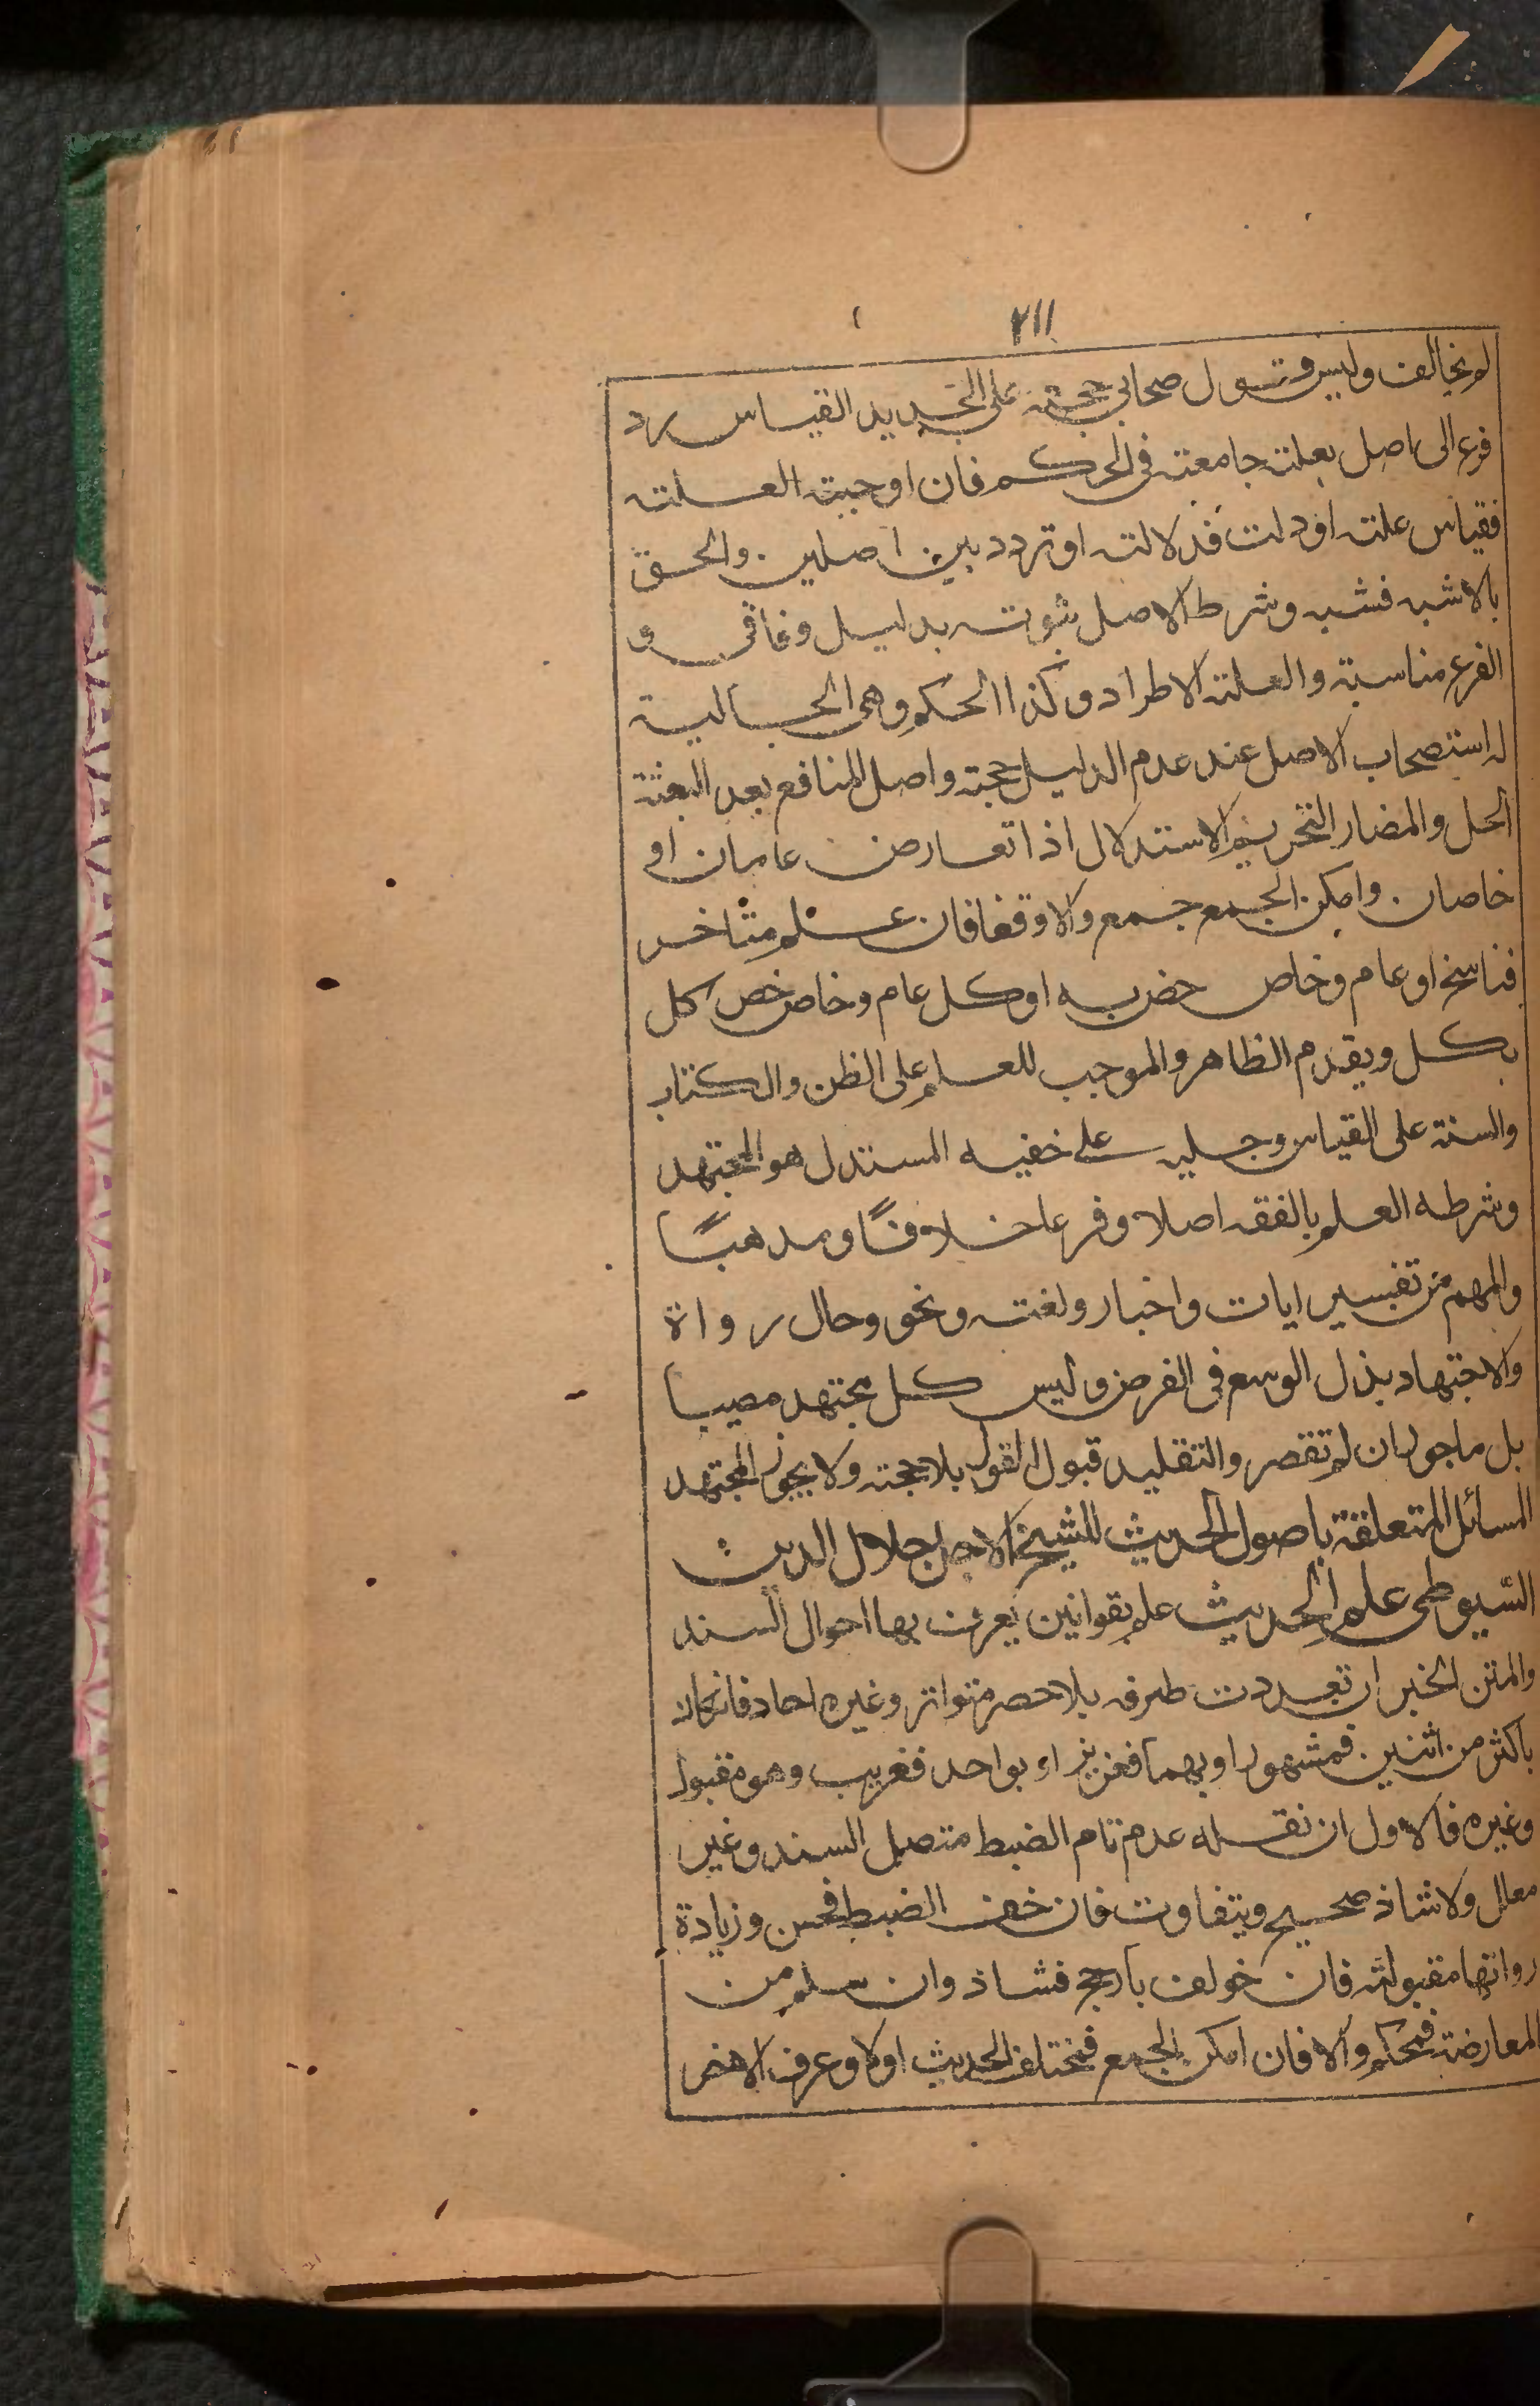 ٢١١
لم يخالف وليس قول صحابي حجته على الجديد القياس رد
فرع الى اصل بعلته جامعته فى الحركم فان اوجبت العلته
فقياس علته اودلت فدلالته او تردد بين اصلين والحق
بالاشبه فشبه وشرط الاصل ثبوته بدليل وفاقى و
الفرع مناسبة والعلته الاطراد وكذا الحكم وهى الجالبية
له استصحاب الاصل عند عدم الدليل حجته واصل المنافع بعد البعثة
الحل والمضار التحريم الاستدلال اذا تعارض عامان او
خاصان وامكن الجمع جمع والا وقفا فان علم متاخر
فناسخ او عام وخاص خص به او كل عام وخاص خص كل
بكل ويقدم الظاهر والموجب للعلم على الظن والكتاب
والسنة على القياس وجليه على خفيه المستدل هو المجتهد
وشرطه العلم بالفقه اصلا وفرعا خلافًا ومذهبًا
والمهم من تفسير ايات واخبار ولغته ونحو وحال رواة
والاجتهاد بذل الوسع فى الغرض وليس كل مجتهد مصيبا
بل ماجور ان لم تقصر والتقليد قبول القول بلا حجته ولا يجوز المجتهد
المسائل المتعلقة باصول الحديث للشيخ الاجل جلال الدين
السيوطى علم الحديث علم بقوانين يعرف بها احوال السند
والمتن الخبر ان تعددت طرقه بلا حصر متواتر وغيره احاد فانكان
باكثر من اثنين فمشهور او بهما فعزيز او بواحد فغريب وهو مقبول
وغيره فالاول ان نقله عدم تام الضبط متصل السند وغير
معلل ولا شاذ صحيح ويتفاوت فان خف الضبط فحسن وزيادة
رواتها مقبولته فان خولف بارجح فشاذ وان سلم من
المعارضة فمحكم والا فان امكن الجمع فمختلف الحديث اولا وعرف الاخر